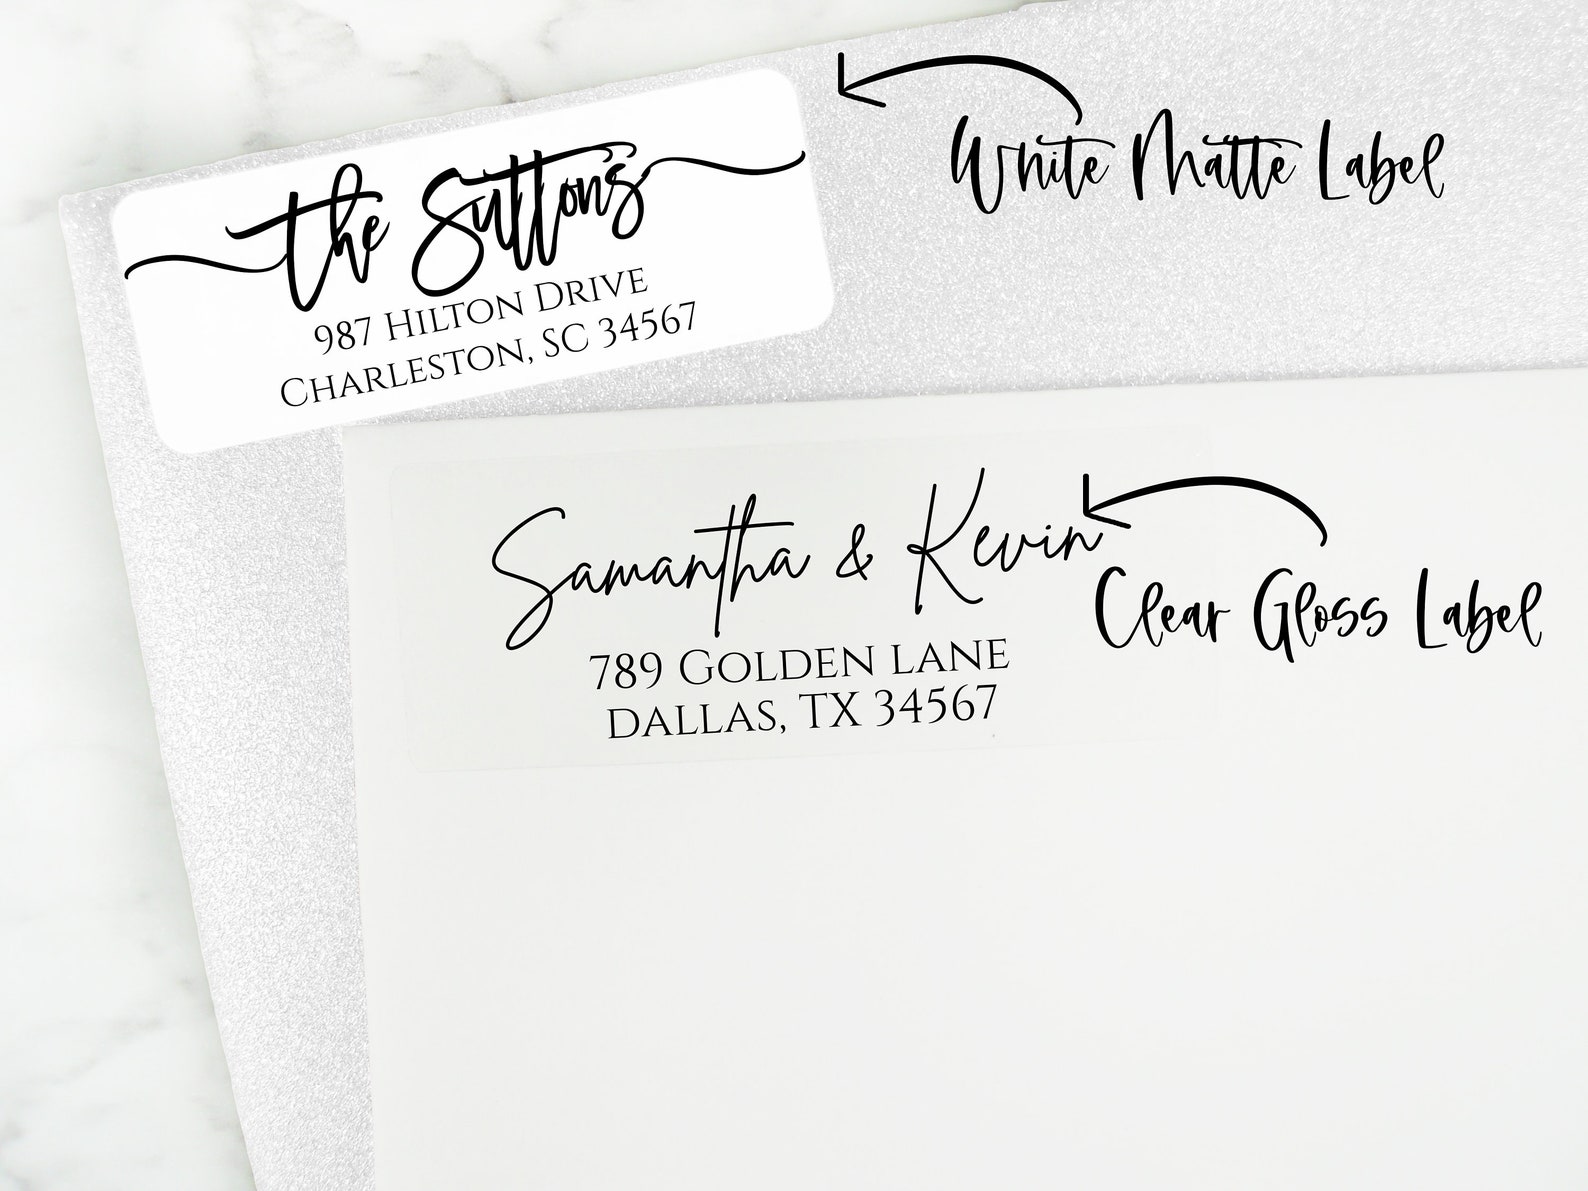 White Matte Label
the Suttons
987 Hilton Drive
Charleston, SC 34567
Samantha & Kevin
Clear Gloss Label
789 Golden lane
dallas, TX 34567